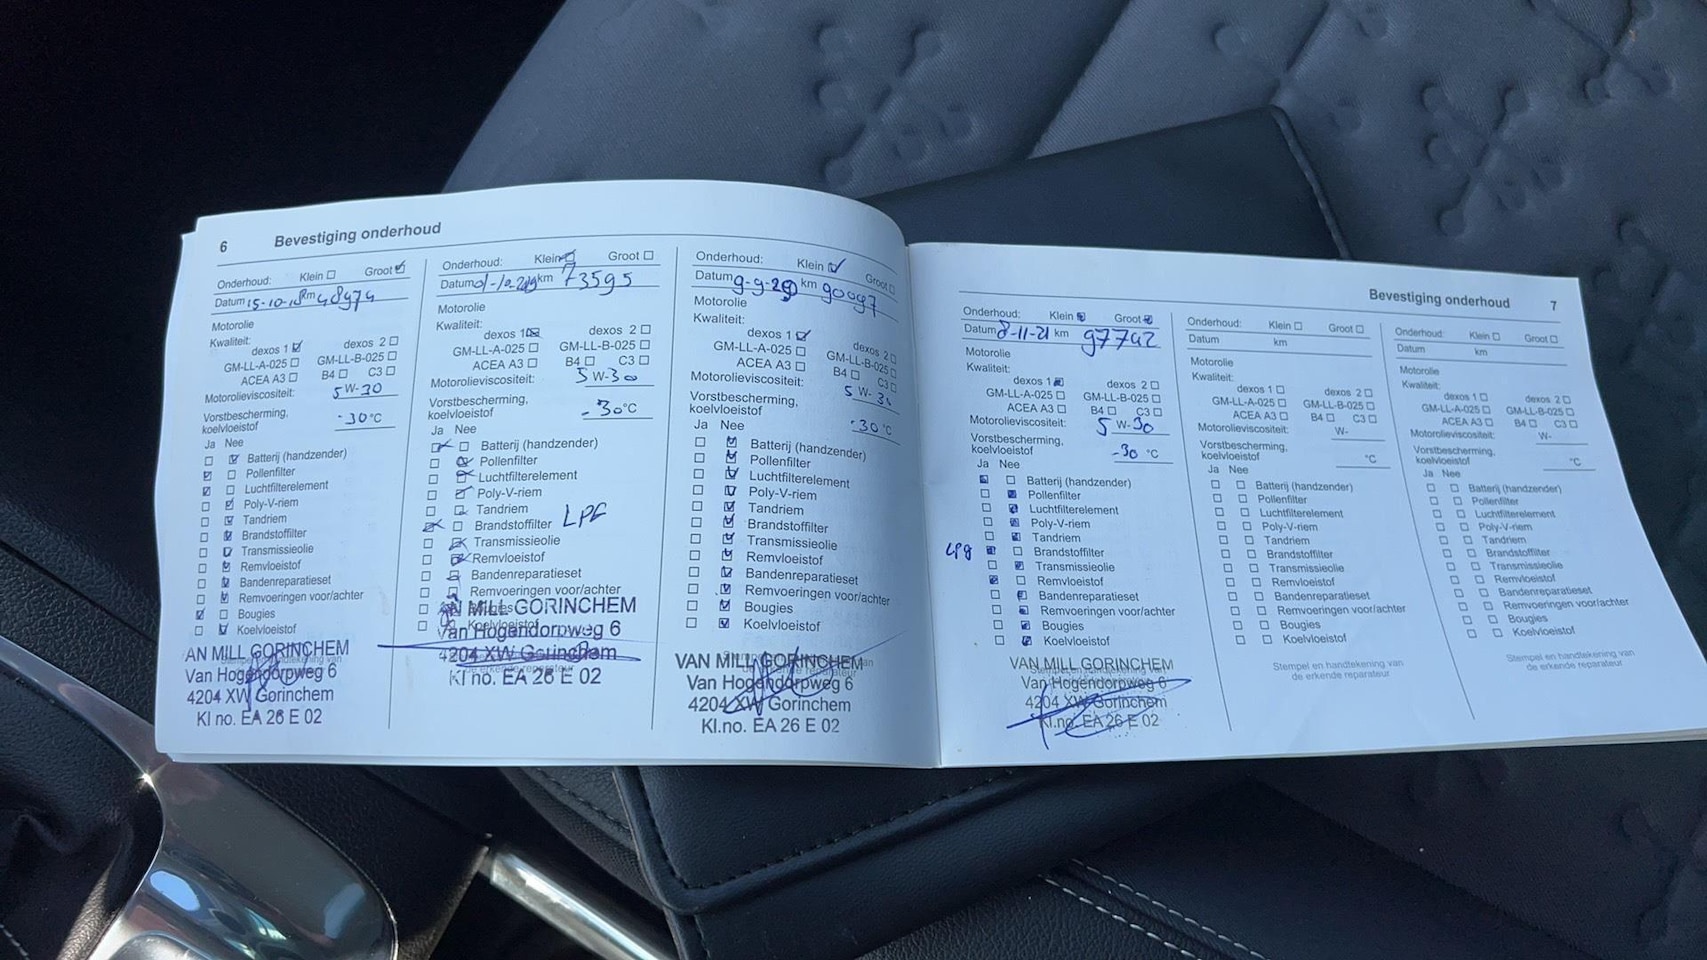 6 Bevestiging onderhoud
Onderhoud: Klein Groot
Datum 15-10-18 km 48974
Motorolie
Kwaliteit:
dexos 1 dexos 2
GM-LL-A-025 GM-LL-B-025
ACEA A3 B4 C3
Motorolieviscositeit: 5 W-30
Vorstbescherming,
koelvloeistof -30 °C
Ja Nee
Batterij (handzender)
Pollenfilter
Luchtfilterelement
Poly-V-riem
Tandriem
Brandstoffilter
Transmissieolie
Remvloeistof
Bandenreparatieset
Remvoeringen voor/achter
Bougies
Koelvloeistof
Stempel en handtekening van
AN MILL GORINCHEM
Van Hogendorpweg 6
4204 XW Gorinchem
Kl no. EA 26 E 02
Onderhoud: Klein Groot
Datum km 73595
Motorolie
Kwaliteit:
dexos 1 dexos 2
GM-LL-A-025 GM-LL-B-025
ACEA A3 B4 C3
Motorolieviscositeit: 5 W-30
Vorstbescherming,
koelvloeistof -30 °C
Ja Nee
Batterij (handzender)
Pollenfilter
Luchtfilterelement
Poly-V-riem
Tandriem
Brandstoffilter LPG
Transmissieolie
Remvloeistof
Bandenreparatieset
Remvoeringen voor/achter
Bougies
Koelvloeistof
AN MILL GORINCHEM
Van Hogendorpweg 6
4204 XW Gorinchem
de erkende reparateur
Kl no. EA 26 E 02
Onderhoud: Klein Groot
Datum 9-9-20 km 90097
Motorolie
Kwaliteit:
dexos 1 dexos 2
GM-LL-A-025 GM-LL-B-025
ACEA A3 B4 C3
Motorolieviscositeit: 5 W-30
Vorstbescherming,
koelvloeistof -30 °C
Ja Nee
Batterij (handzender)
Pollenfilter
Luchtfilterelement
Poly-V-riem
Tandriem
Brandstoffilter
Transmissieolie
Remvloeistof
Bandenreparatieset
Remvoeringen voor/achter
Bougies
Koelvloeistof
VAN MILL GORINCHEM
Van Hogendorpweg 6
4204 XW Gorinchem
Kl.no. EA 26 E 02
Bevestiging onderhoud 7
Onderhoud: Klein Groot
Datum 8-11-21 km 97742
Motorolie
Kwaliteit:
dexos 1 dexos 2
GM-LL-A-025 GM-LL-B-025
ACEA A3 B4 C3
Motorolieviscositeit: 5 W-30
Vorstbescherming,
koelvloeistof -30 °C
Ja Nee
Batterij (handzender)
Pollenfilter
Luchtfilterelement
Poly-V-riem
Tandriem
LPG Brandstoffilter
Transmissieolie
Remvloeistof
Bandenreparatieset
Remvoeringen voor/achter
Bougies
Koelvloeistof
VAN MILL GORINCHEM
Van Hogendorpweg 6
4204 XW Gorinchem
Kl.no. EA 26 E 02
Onderhoud: Klein Groot
Datum km
Motorolie
Kwaliteit:
dexos 1 dexos 2
GM-LL-A-025 GM-LL-B-025
ACEA A3 B4 C3
Motorolieviscositeit: W-
Vorstbescherming,
koelvloeistof °C
Ja Nee
Batterij (handzender)
Pollenfilter
Luchtfilterelement
Poly-V-riem
Tandriem
Brandstoffilter
Transmissieolie
Remvloeistof
Bandenreparatieset
Remvoeringen voor/achter
Bougies
Koelvloeistof
Stempel en handtekening van
de erkende reparateur
Onderhoud: Klein Groot
Datum km
Motorolie
Kwaliteit:
dexos 1 dexos 2
GM-LL-A-025 GM-LL-B-025
ACEA A3 B4 C3
Motorolieviscositeit: W-
Vorstbescherming,
koelvloeistof °C
Ja Nee
Batterij (handzender)
Pollenfilter
Luchtfilterelement
Poly-V-riem
Tandriem
Brandstoffilter
Transmissieolie
Remvloeistof
Bandenreparatieset
Remvoeringen voor/achter
Bougies
Koelvloeistof
Stempel en handtekening van
de erkende reparateur